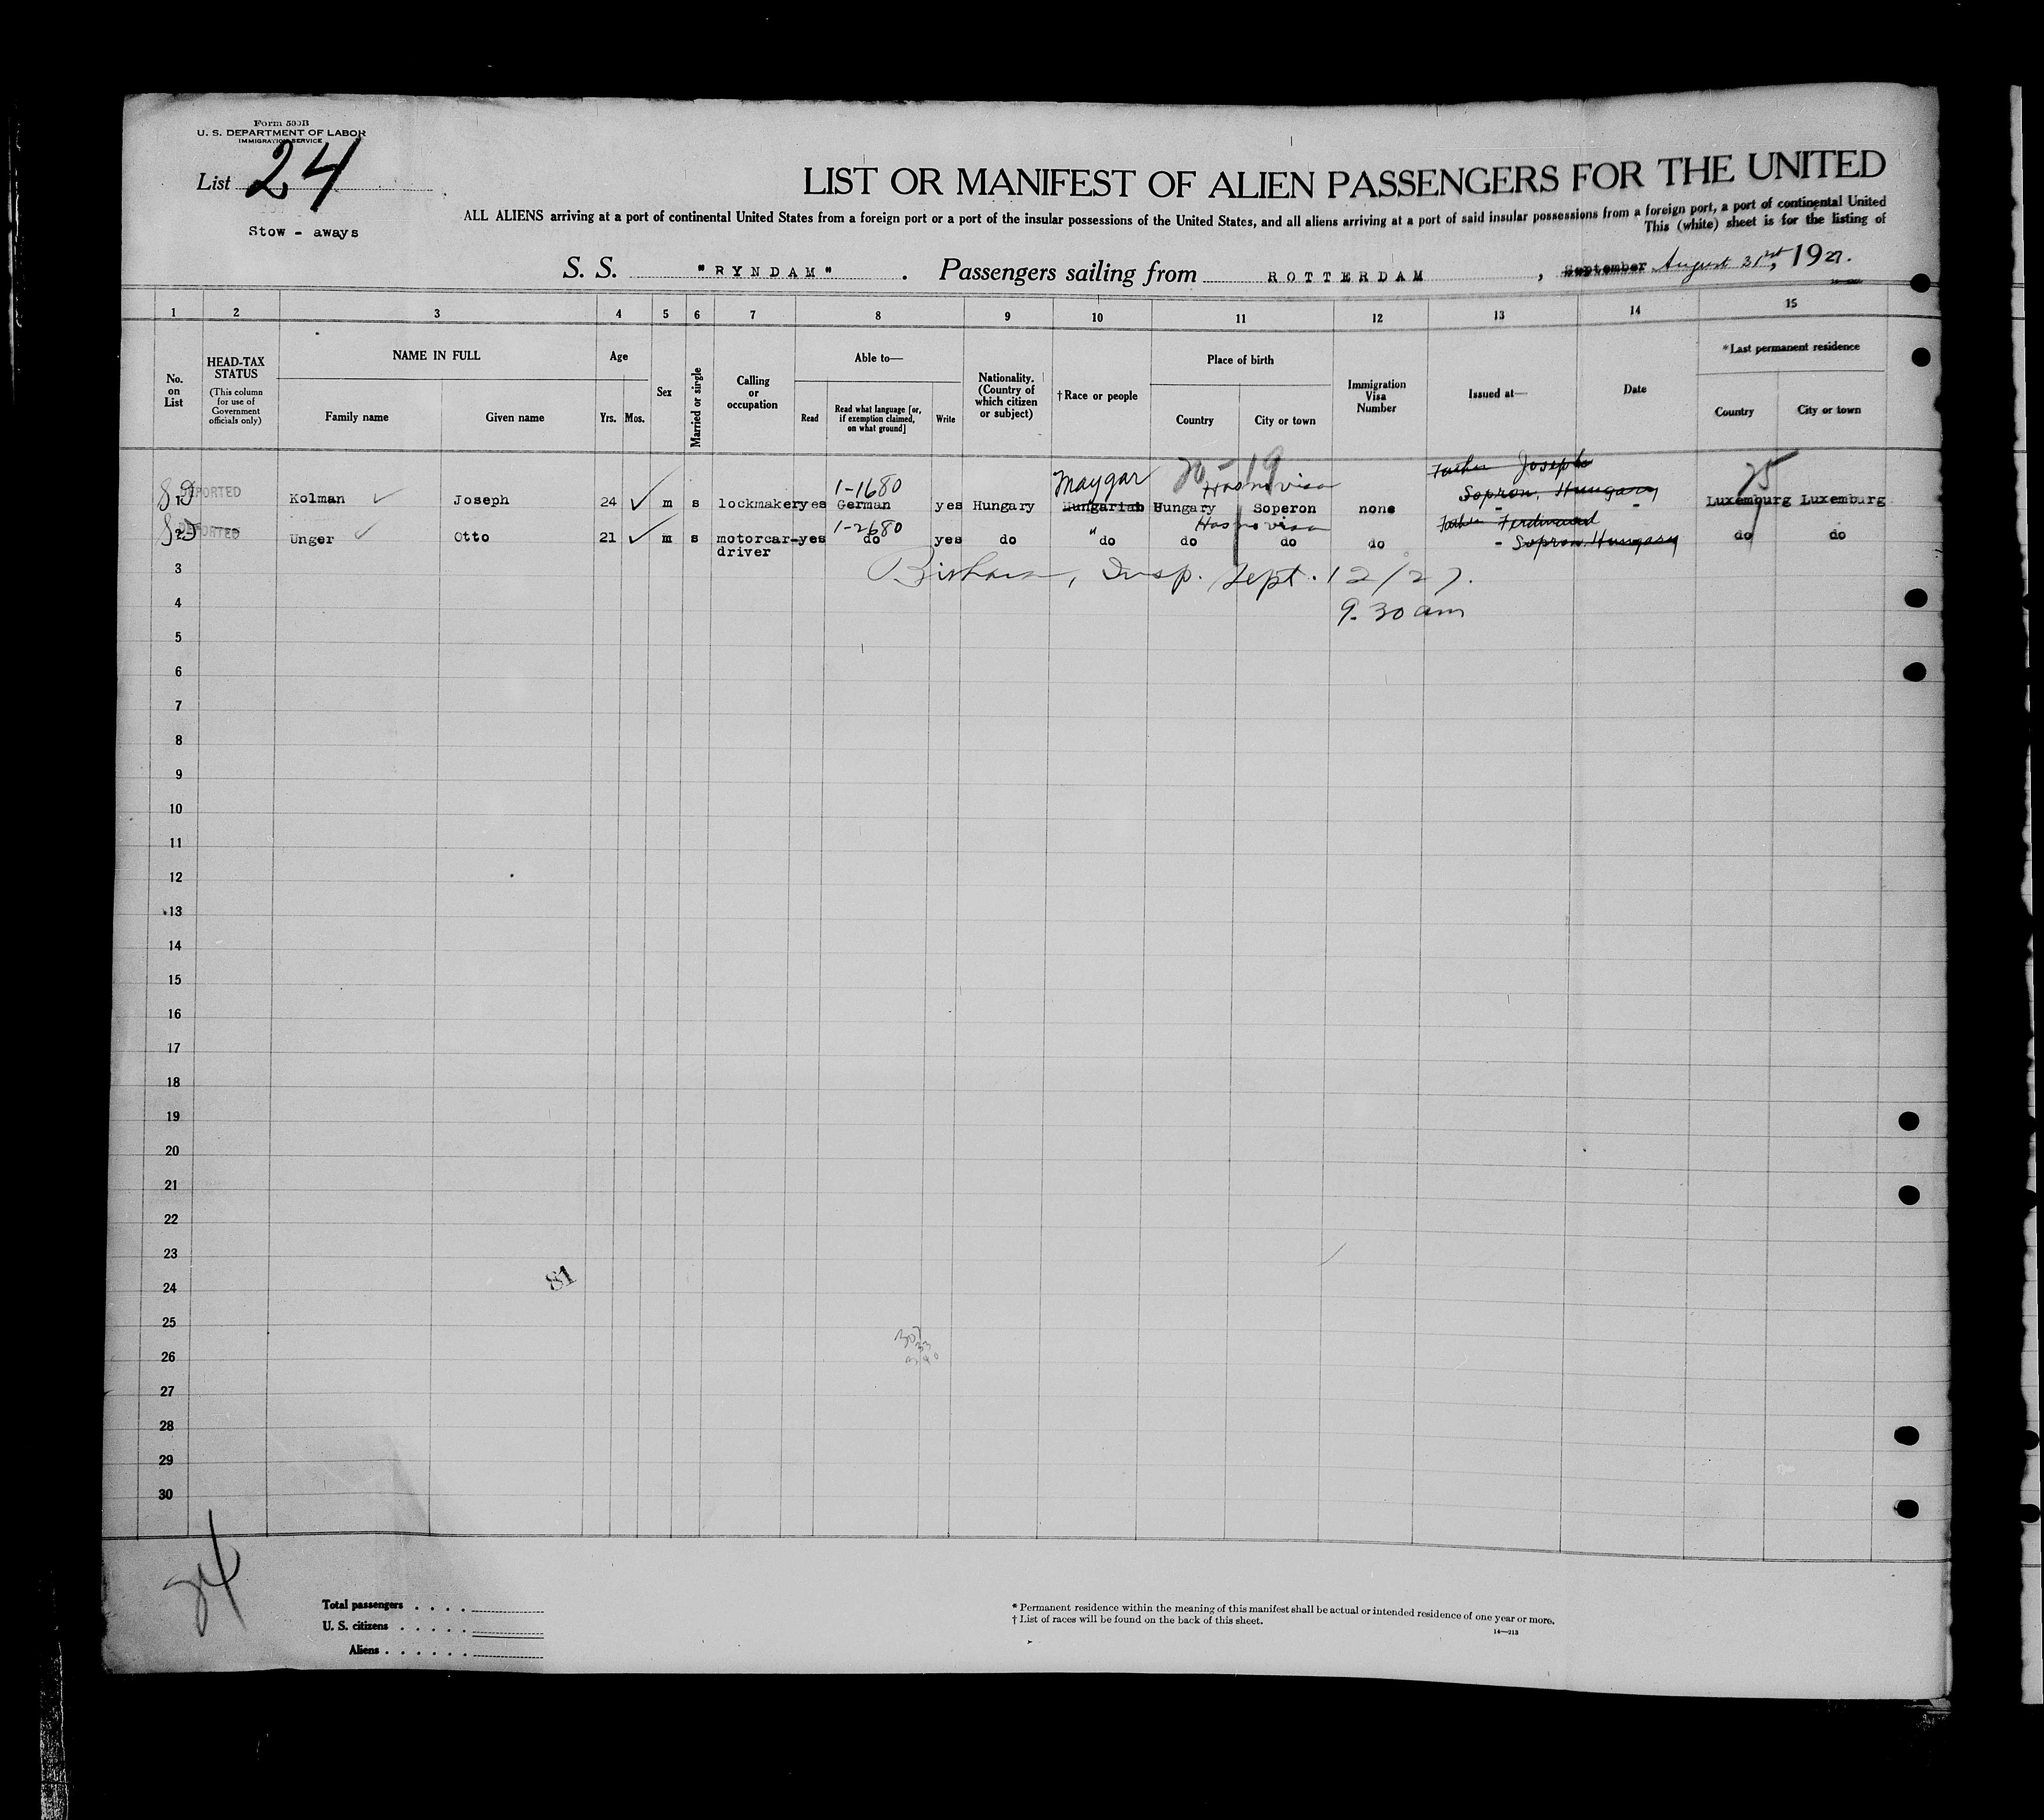 Form 500B
U. S. DEPARTMENT OF LABOR
IMMIGRATION SERVICE
List 24
Stow - aways
LIST OR MANIFEST OF ALIEN PASSENGERS FOR THE UNITED
ALL ALIENS arriving at a port of continental United States from a foreign port or a port of the insular possessions of the United States, and all aliens arriving at a port of said insular possessions from a foreign port, a port of continental United
This (white) sheet is for the listing of
S. S. "RYNDAM" . Passengers sailing from ROTTERDAM , September August 31st, 1927.
1 2 3 4 5 6 7 8 9 10 11 12 13 14 15
No. on List
HEAD-TAX STATUS
(This column for use of Government officials only)
NAME IN FULL
Family name
Given name
Age
Yrs.
Mos.
Sex
Married or single
Calling or occupation
Able to—
Read
Read what language [or, if exemption claimed, on what ground]
Write
Nationality. (Country of which citizen or subject)
†Race or people
Place of birth
Country
City or town
Immigration Visa Number
Issued at—
Date
*Last permanent residence
Country
City or town
1-1680 Maygar 20-19 Has no visa Father Joseph 75
1 DEPORTED Kolman Joseph 24 m s lockmaker yes German yes Hungary Hungarian Hungary Soperon none Sopron, Hungary - - Luxemburg Luxemburg
1-2680 Has no visa Father Ferdinand
2 DEPORTED Unger Otto 21 m s motorcar- yes do yes do " do do do do - Sopron Hungary do do
driver
3 Insp. Sept. 12/27.
4 9.30 am
5
6
7
8
9
10
11
12
13
14
15
16
17
18
19
20
21
22
23
24 81
25
26
27
28
29
30
24
Total passengers . . . .
U. S. citizens . . . . .
Aliens . . . . . .
* Permanent residence within the meaning of this manifest shall be actual or intended residence of one year or more.
† List of races will be found on the back of this sheet.
14—213